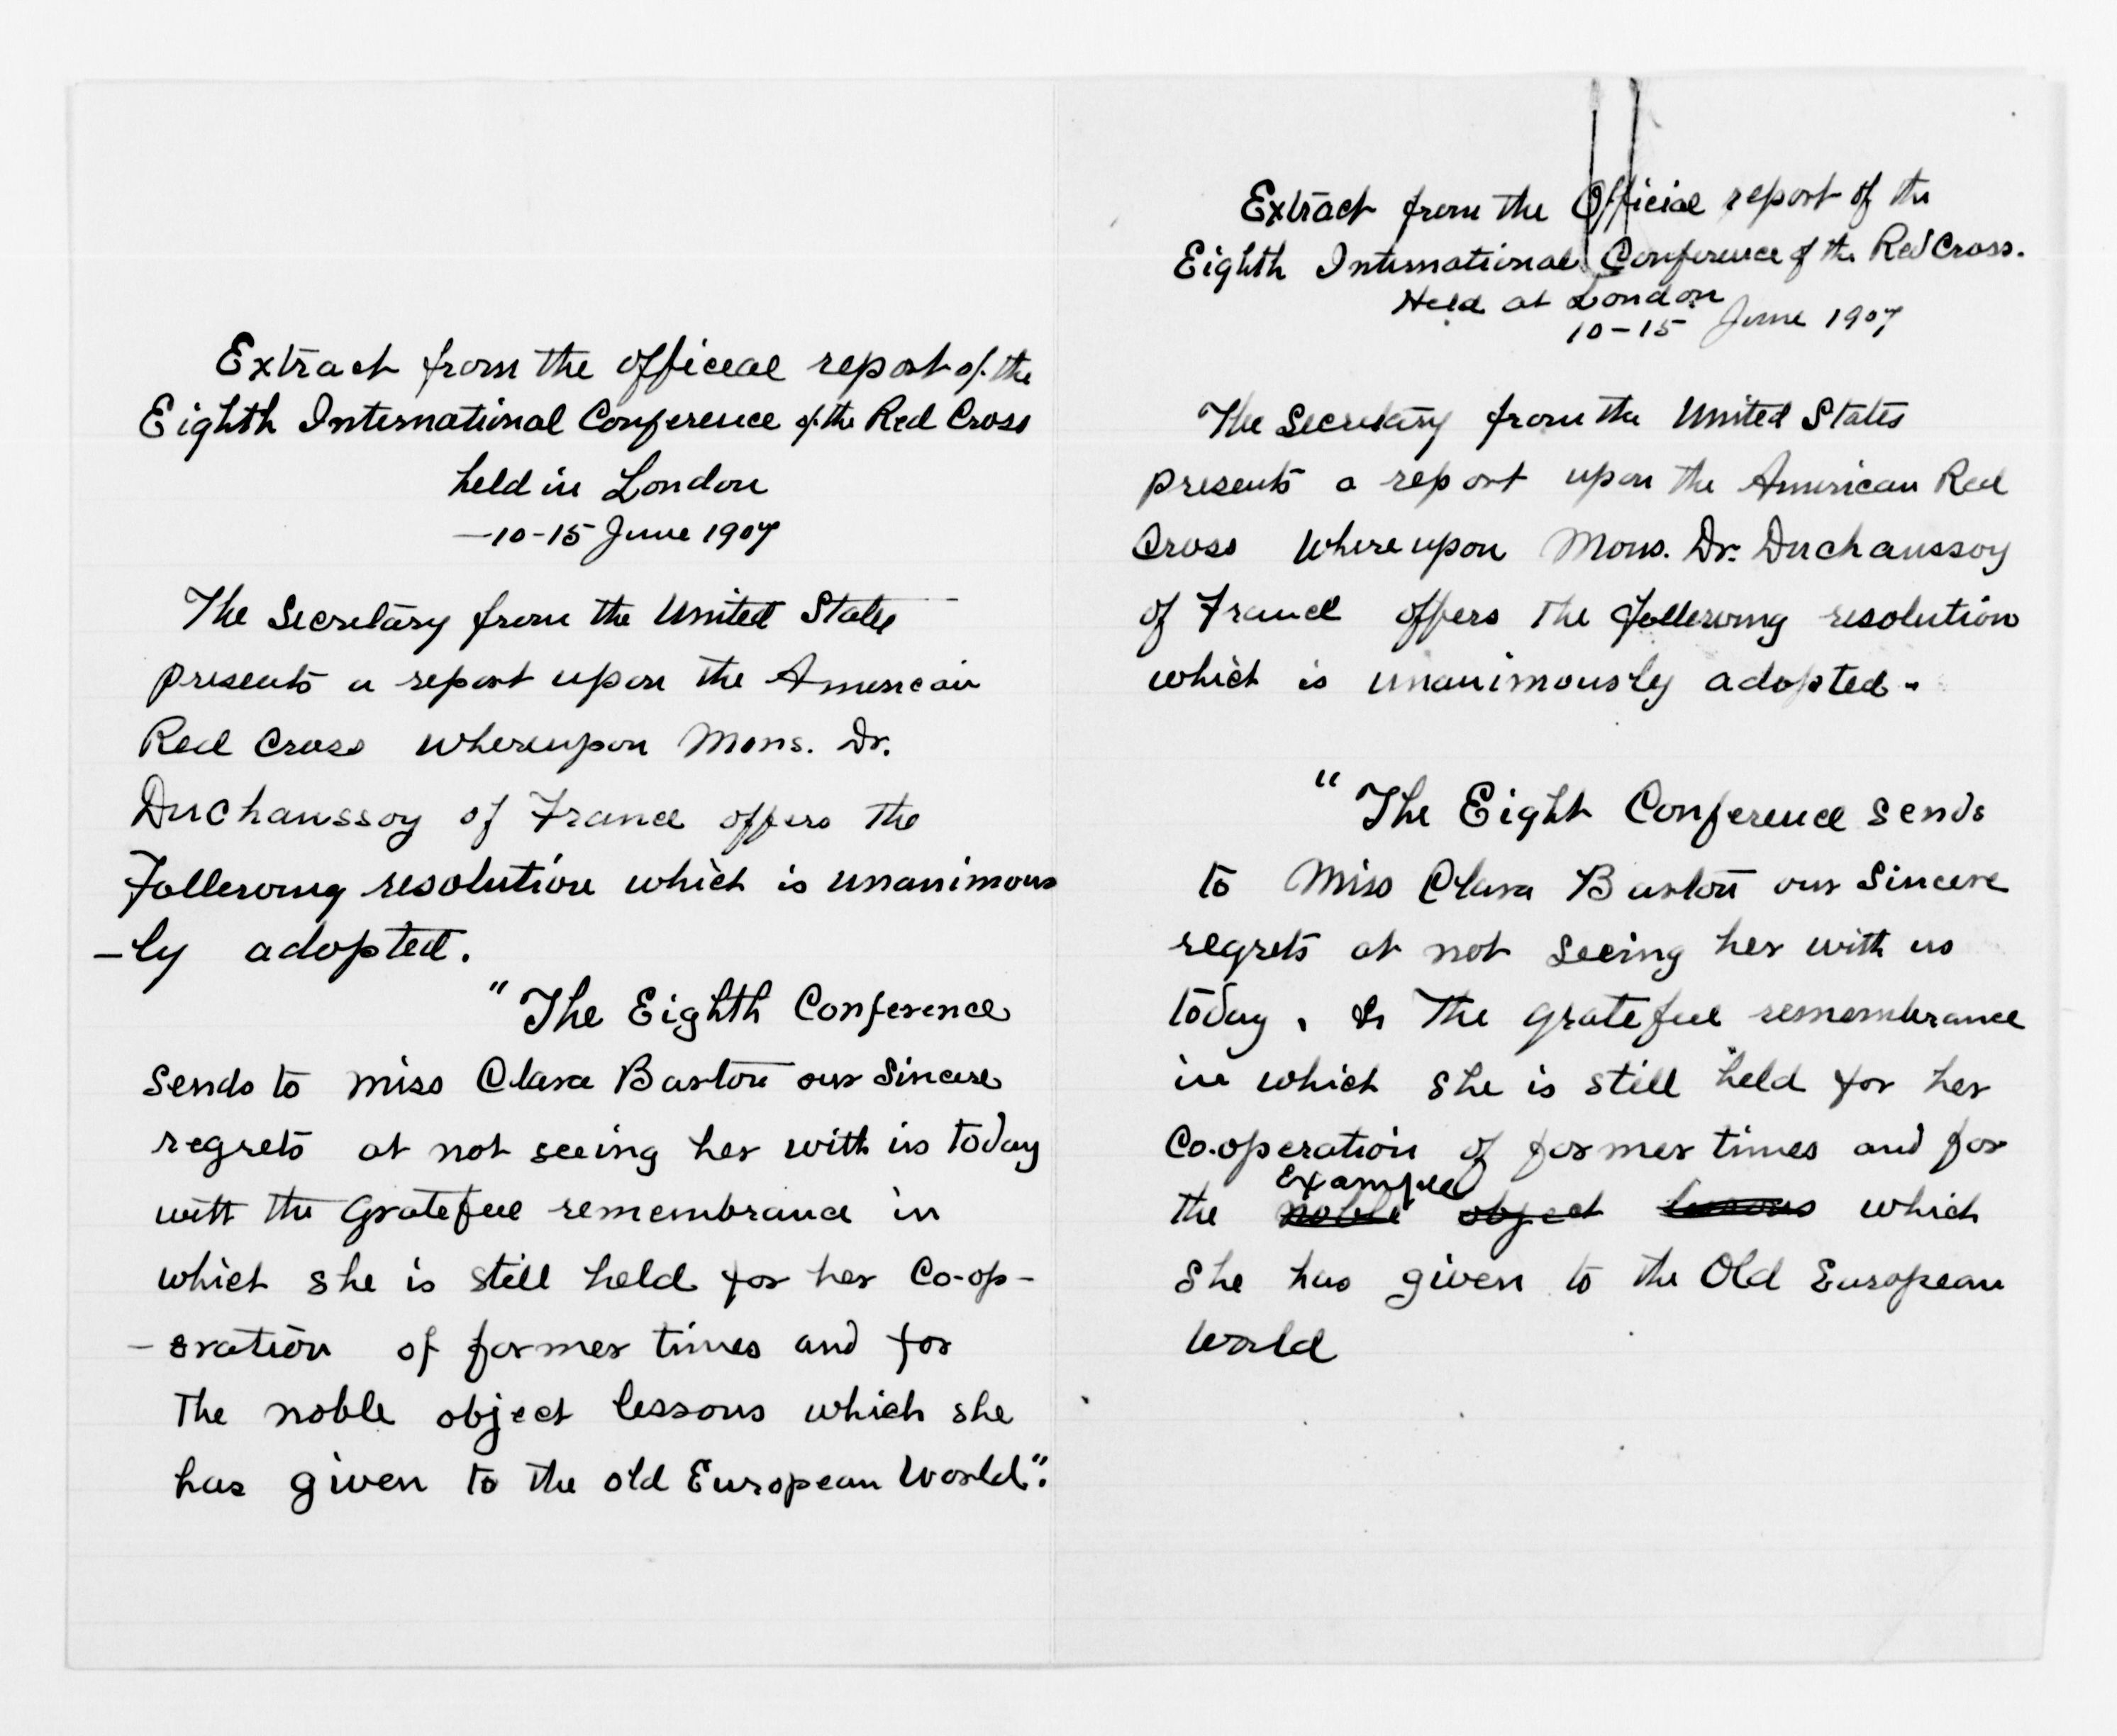 Extract from the official report of the
Eighth International Conference of the Red Cross
held in London
—10-15 June 1907
The Secretary from the United States
presents a report upon the American
Red Cross whereupon Mons. Dr.
Duchaussoy of France offers the
following resolution which is unanimous
-ly adopted.
"The Eighth Conference
sends to Miss Clara Barton our sincere
regrets at not seeing her with us today
with the grateful remembrance in
which she is still held for her Co-op-
-eration of former times and for
the noble object lessons which she
has given to the old European World".
Extract from the Official report of the
Eighth International Conference of the Red Cross.
Held at London
10-15 June 1907
The Secretary from the United States
presents a report upon the American Red
Cross whereupon Mons. Dr. Duchaussoy
of France offers the following resolution
which is unanimously adopted.
"The Eight Conference sends
to Miss Clara Barton our sincere
regrets at not seeing her with us
today, & the grateful remembrance
in which she is still held for her
Co-operation of former times and for
Example
the noble object lessons which
she has given to the Old European
World